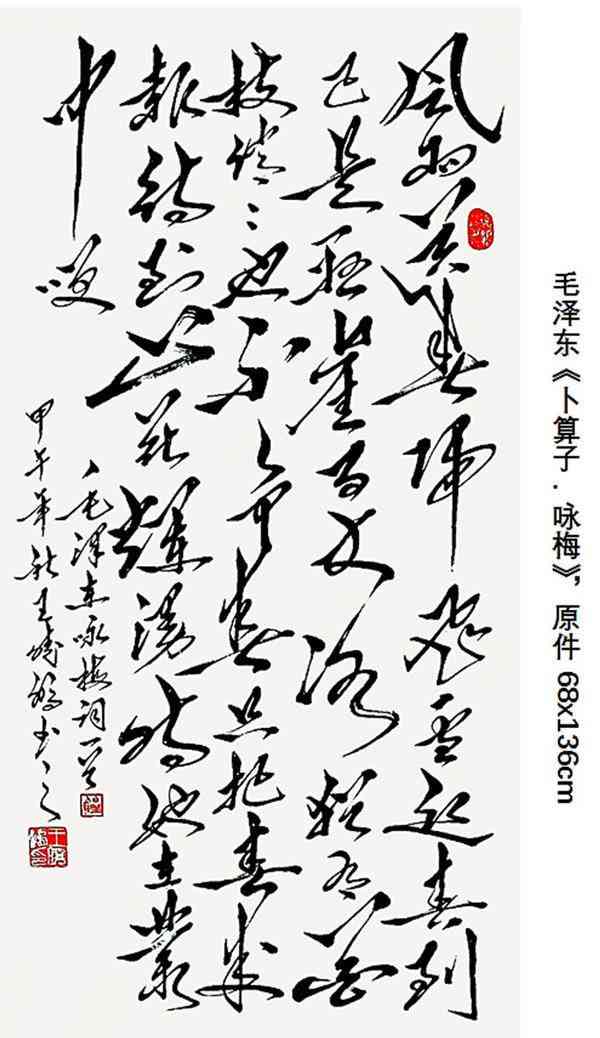 风雨送春归飞雪迎春到
已是悬崖百丈冰犹有花
枝俏俏也不争春只把春来
報待到山花爛漫時她在叢
中咲
毛泽东咏梅词一首
甲午年秋王书之
毛泽东《卜算子.咏梅》,原件 68x136cm